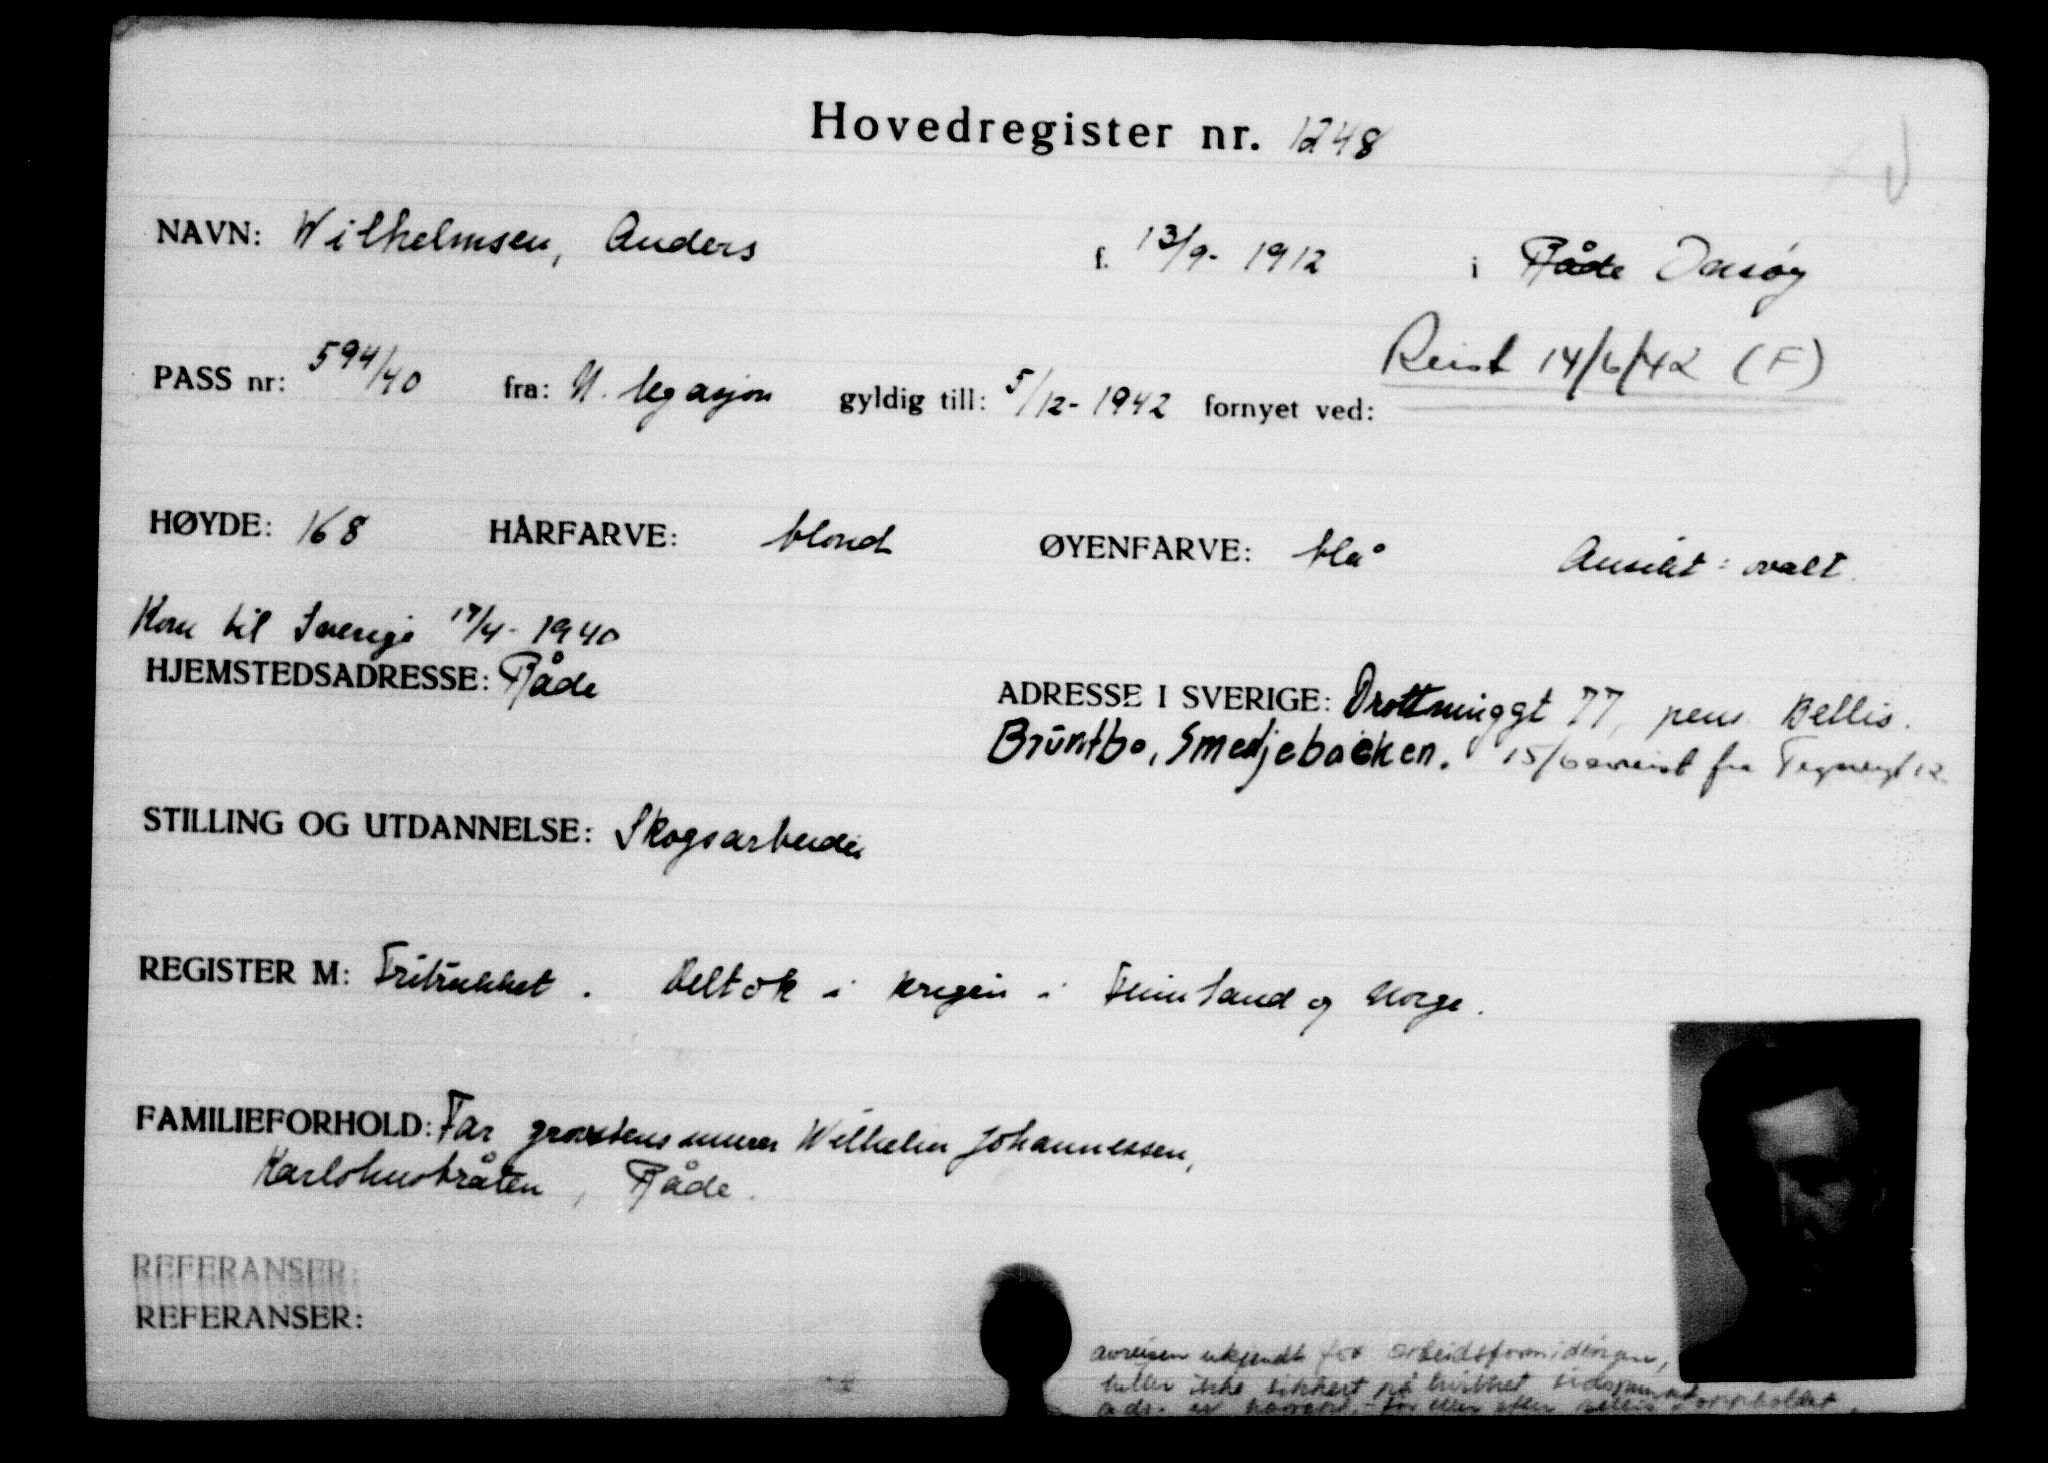 Hovedregister nr. 1248
NAVN: Wilhelmsen, Anders f. 13/9- 1912 i Råde Onsøy
Reist 14/6/42 (F)
PASS nr: 594/40 fra: N. legasjon gyldig till: 5/12- 1942 fornyet ved:
HØYDE: 168 HÅRFARVE: blond ØYENFARVE: blå Ansikt: ovalt.
Kom til Sverige 17/4- 1940
HJEMSTEDSADRESSE: Råde ADRESSE I SVERIGE: Drottninggt 77, pens Bellis.
Bruntbo, Smedjebacken. 15/6 avreist fra Tegnergt 12
STILLING OG UTDANNELSE: Skogsarbeider
REGISTER M: Fritrukket. Deltok i krigen i Finnland og Norge.
FAMILIEFORHOLD: Far Wilhelm Johannessen,
Karlshusbråten, Råde.
REFERANSER:
REFERANSER:
avreisen ukjendt for arbeidsformidlingen,
heller ikke sikkert på hvilket
adr. er - før eller efter Bellis oppholdet.